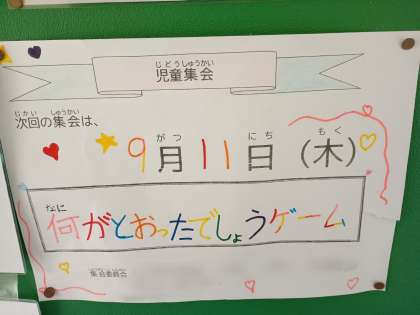 じどうしゅうかい
児童集会
じかい しゅうかい
次回の集会は、
がつ にち もく
9月11日（木）
なに
何がとおったでしょうゲーム
集会委員会